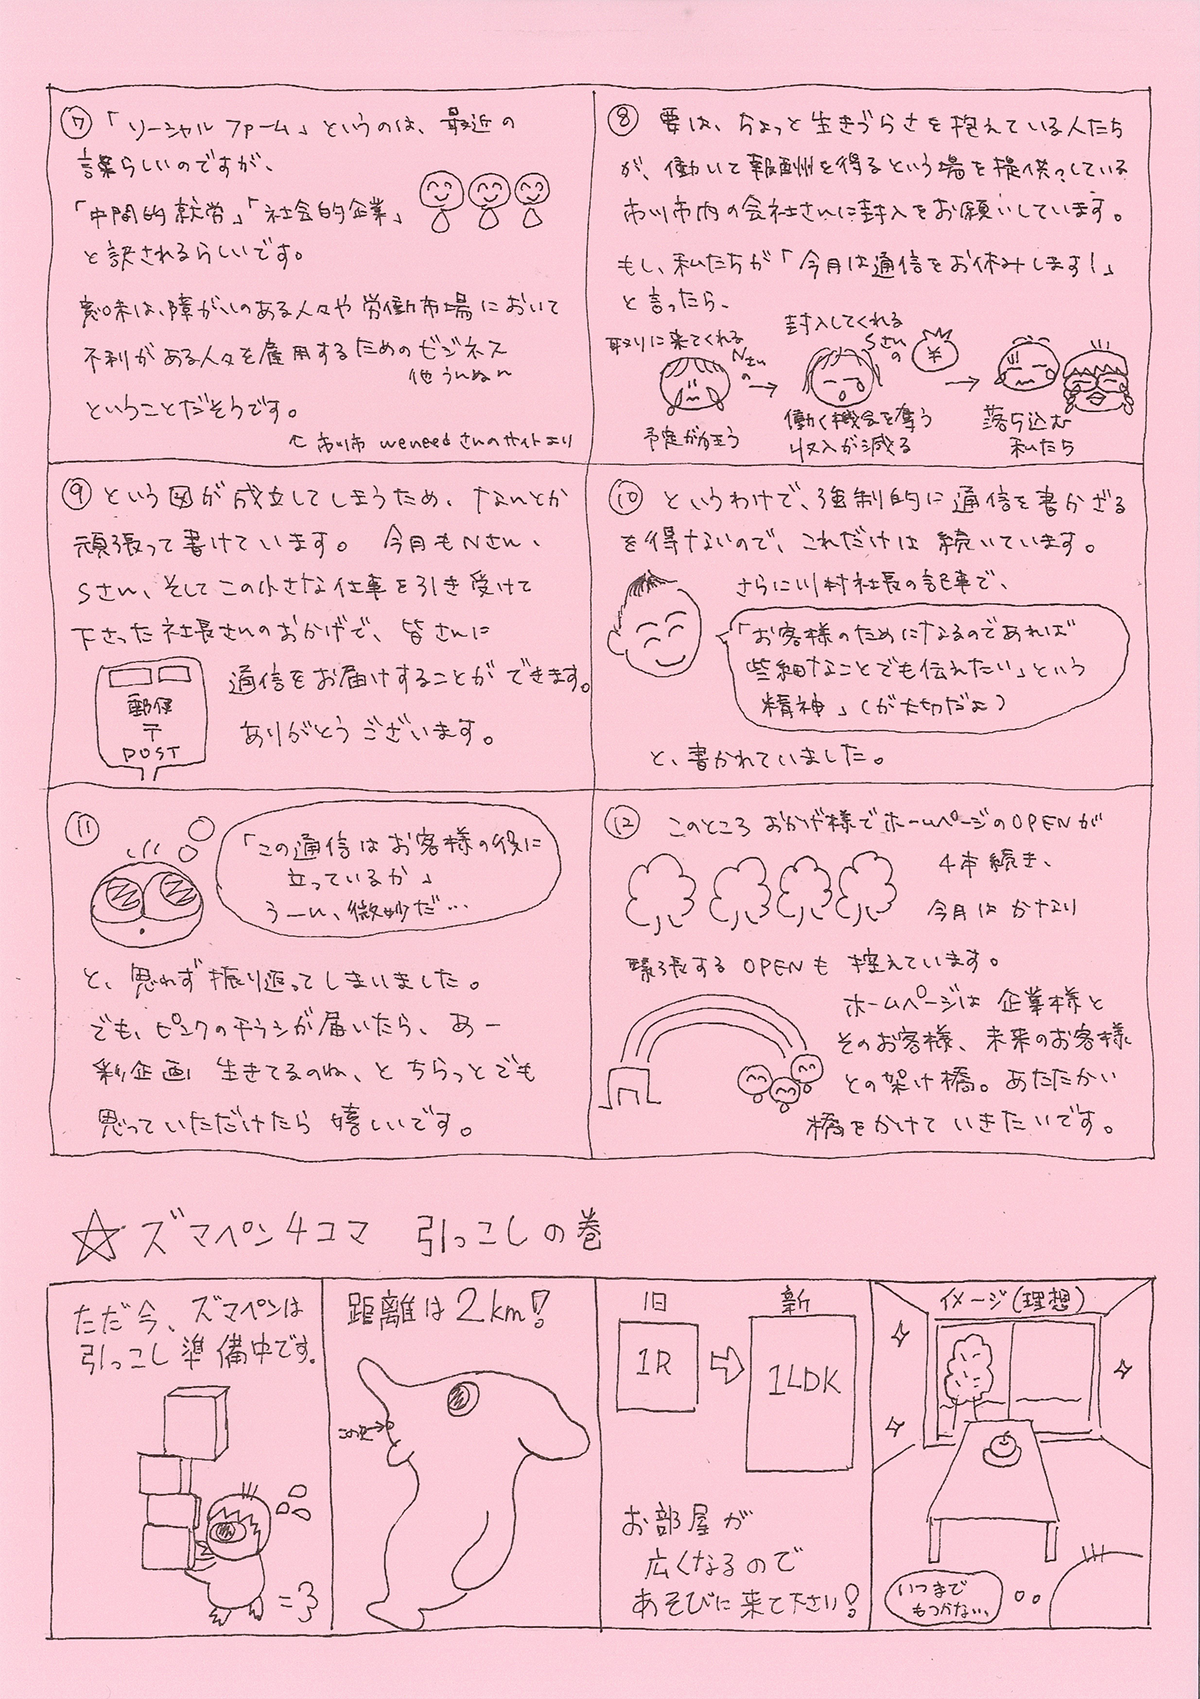 ⑦「ソーシャル ファーム」というのは、最近の
言葉らしいのですが、
「中間的就労」「社会的企業」
と訳されるらしいです。
意味は、障がいのある人々や労働市場において
不利がある人々を雇用するためのビジネス
他うんぬん
ということだそうです。
市川市 weneedさんのサイトより
⑧ 要は、ちょっと生きづらさを抱えている人たち
が、働いて報酬を得るという場を提供している
市川市内の会社さんに封入をお願いしています。
もし、私たちが「今月は通信をお休みします!」
と言ったら、
取りに来てくれる
Nさんの
予定が狂う
封入してくれる
Sさんの
¥
働く機会を奪う
収入が減る
落ち込む
私たち
⑨ という図が成立してしまうため、なんとか
頑張って書けています。 今月もNさん、
Sさん、そしてこの小さな仕事を引き受けて
下さった社長さんのおかげで、皆さんに
通信をお届けすることができます。
ありがとうございます。
郵便
〒
POST
⑩ というわけで、強制的に通信を書かざる
を得ないので、これだけは続いています。
さらに川村社長の記事で、
「お客様のためになるのであれば
些細なことでも伝えたい」という
精神」(が大切だよ)
と、書かれていました。
⑪
「この通信はお客様の役に
立っているか」
うーん、微妙だ…
と、思わず振り返ってしまいました。
でも、ピンクのチラシが届いたら、あー
彩企画 生きてるのね、とちらっとでも
思っていただけたら嬉しいです。
⑫ このところ おかげ様でホームページのOPENが
4本続き、
今月は かなり
緊張する OPENも 控えています。
ホームページは 企業様と
そのお客様、未来のお客様
との架け橋。あたたかい
橋をかけていきたいです。
☆ズマペン4コマ 引っこしの巻
ただ今、ズマペンは
引っこし準備中です。
距離は2km!
旧
新
1R
1LDK
お部屋が
広くなるので
あそびに来て下さい!
イメージ(理想)
いつまで
もつかな…